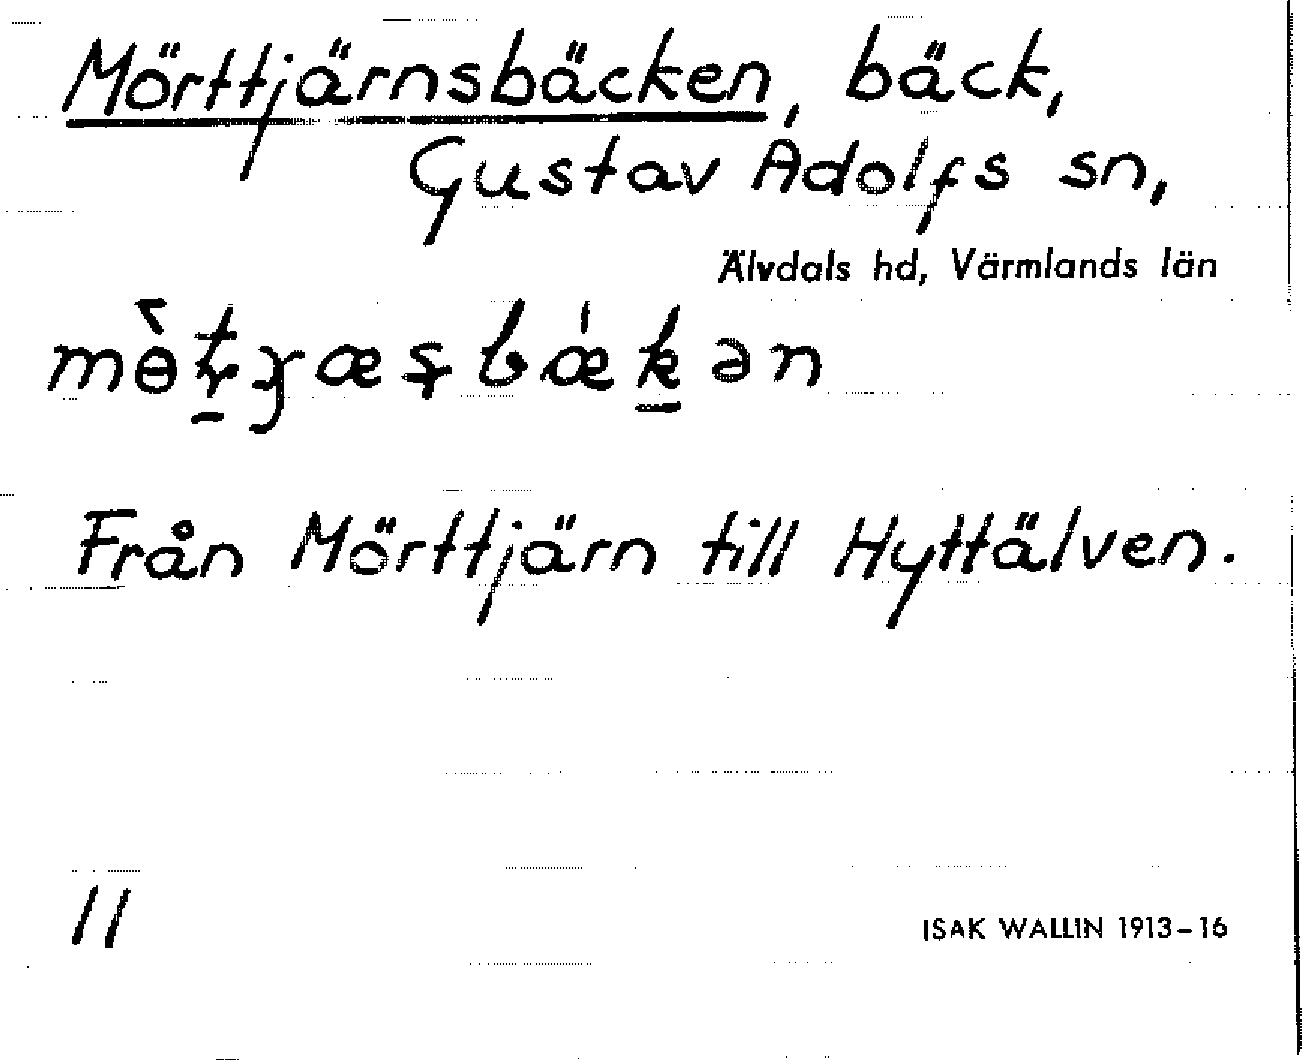 Mörttjärnsbäcken, bäck,
Gustav Adolfs sn,
Älvdals hd, Värmlands län
Från Mörttjärn till Hyttälven.
11
ISAK WALLIN 1913-16